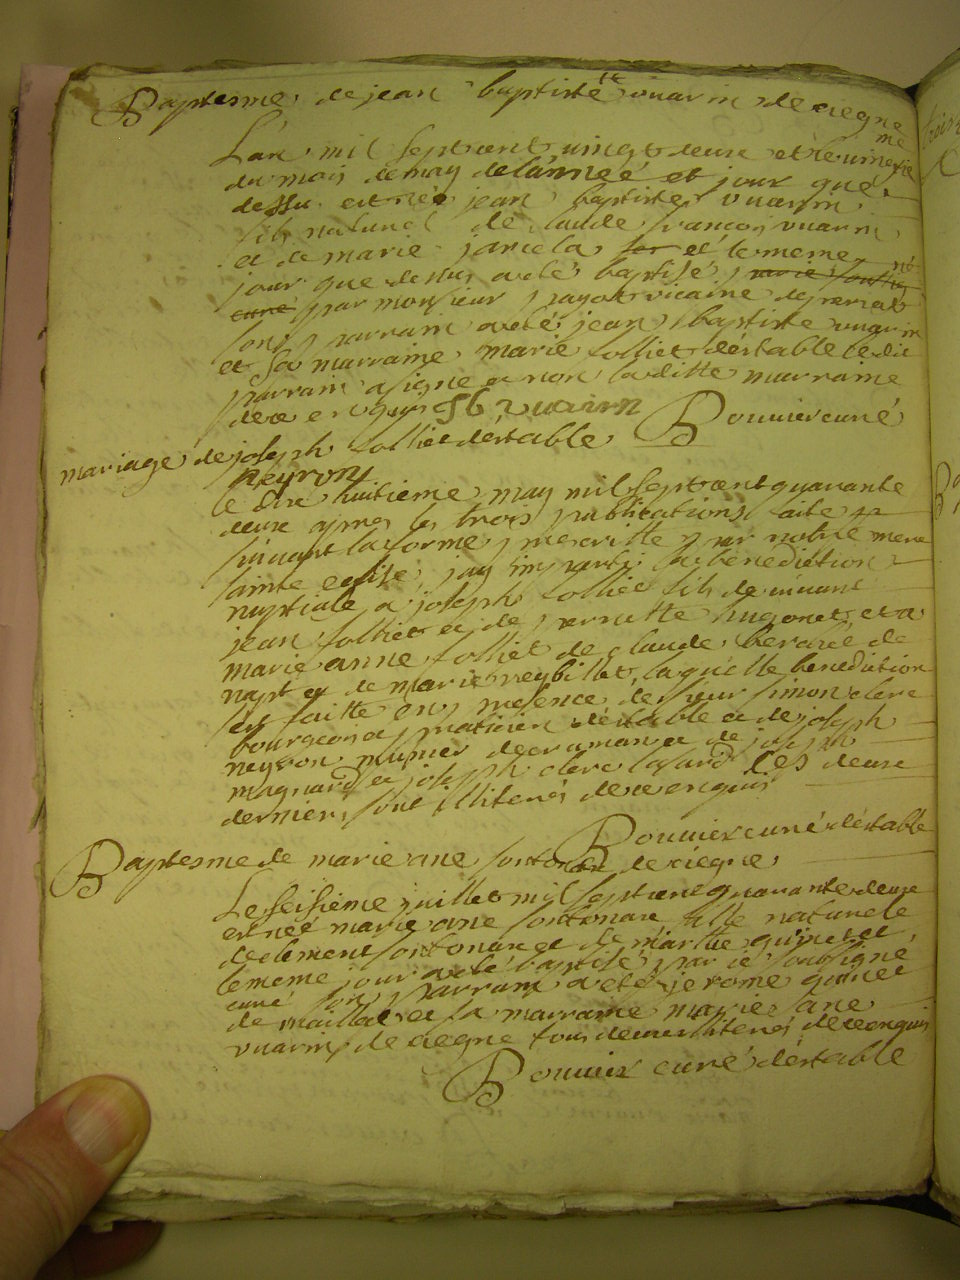 Baptesme de jean baptiste vuarin de ciegne
L'an mil sept cent vingt deux et le
du mois de may de l'anneé et jour que
dessu est neé jean baptiste vuarin
fils naturel de claude francois vuarin
et de marie janela et le meme
jour que dessus a eté baptisé
curé par monsieur payot vicaire de
son parrain a eté jean baptiste vuarin
et sa marraine marie tolliet déstable ledit
parrain a signé et non laditte marraine
de ce enquis JB vuairin Bouvier curé
mariage de joseph tolliet déstable
neyron
le dix huitieme may mil sept cent quarante
deux apres les trois publications faite
suivant la forme prescritte par notre mere
sainte eglise jay imparti la benediction
nuptiale a joseph tolliet fils de
jean tolliet et de pernette hugonet et a
marie anne tolliet de claude berardé de
napt et de marie reybillet, laquelle benediction
fut faitte en presence de sieur simon clerc
bourgeois et praticien déstable et de joseph
neyron munier de craman et de joseph
magnard et joseph clerc les deux
derniers sont illiterés de ce enquis
Bouvier curé déstable
Baptesme de marie ane sontonax de ciegne
Le seisieme juillet mil sept cent quarante deux
est neé marie ane sontonax fille naturele
de clement sontonax et de marthe quinet et
le meme jour a eté baptisé par je soubsigné
curé son parrain a eté jerome quinet
de maillat et sa marraine marie ane
vuarin de ciegne tous deux illiterés de ce enquis
Bouvier curé déstable